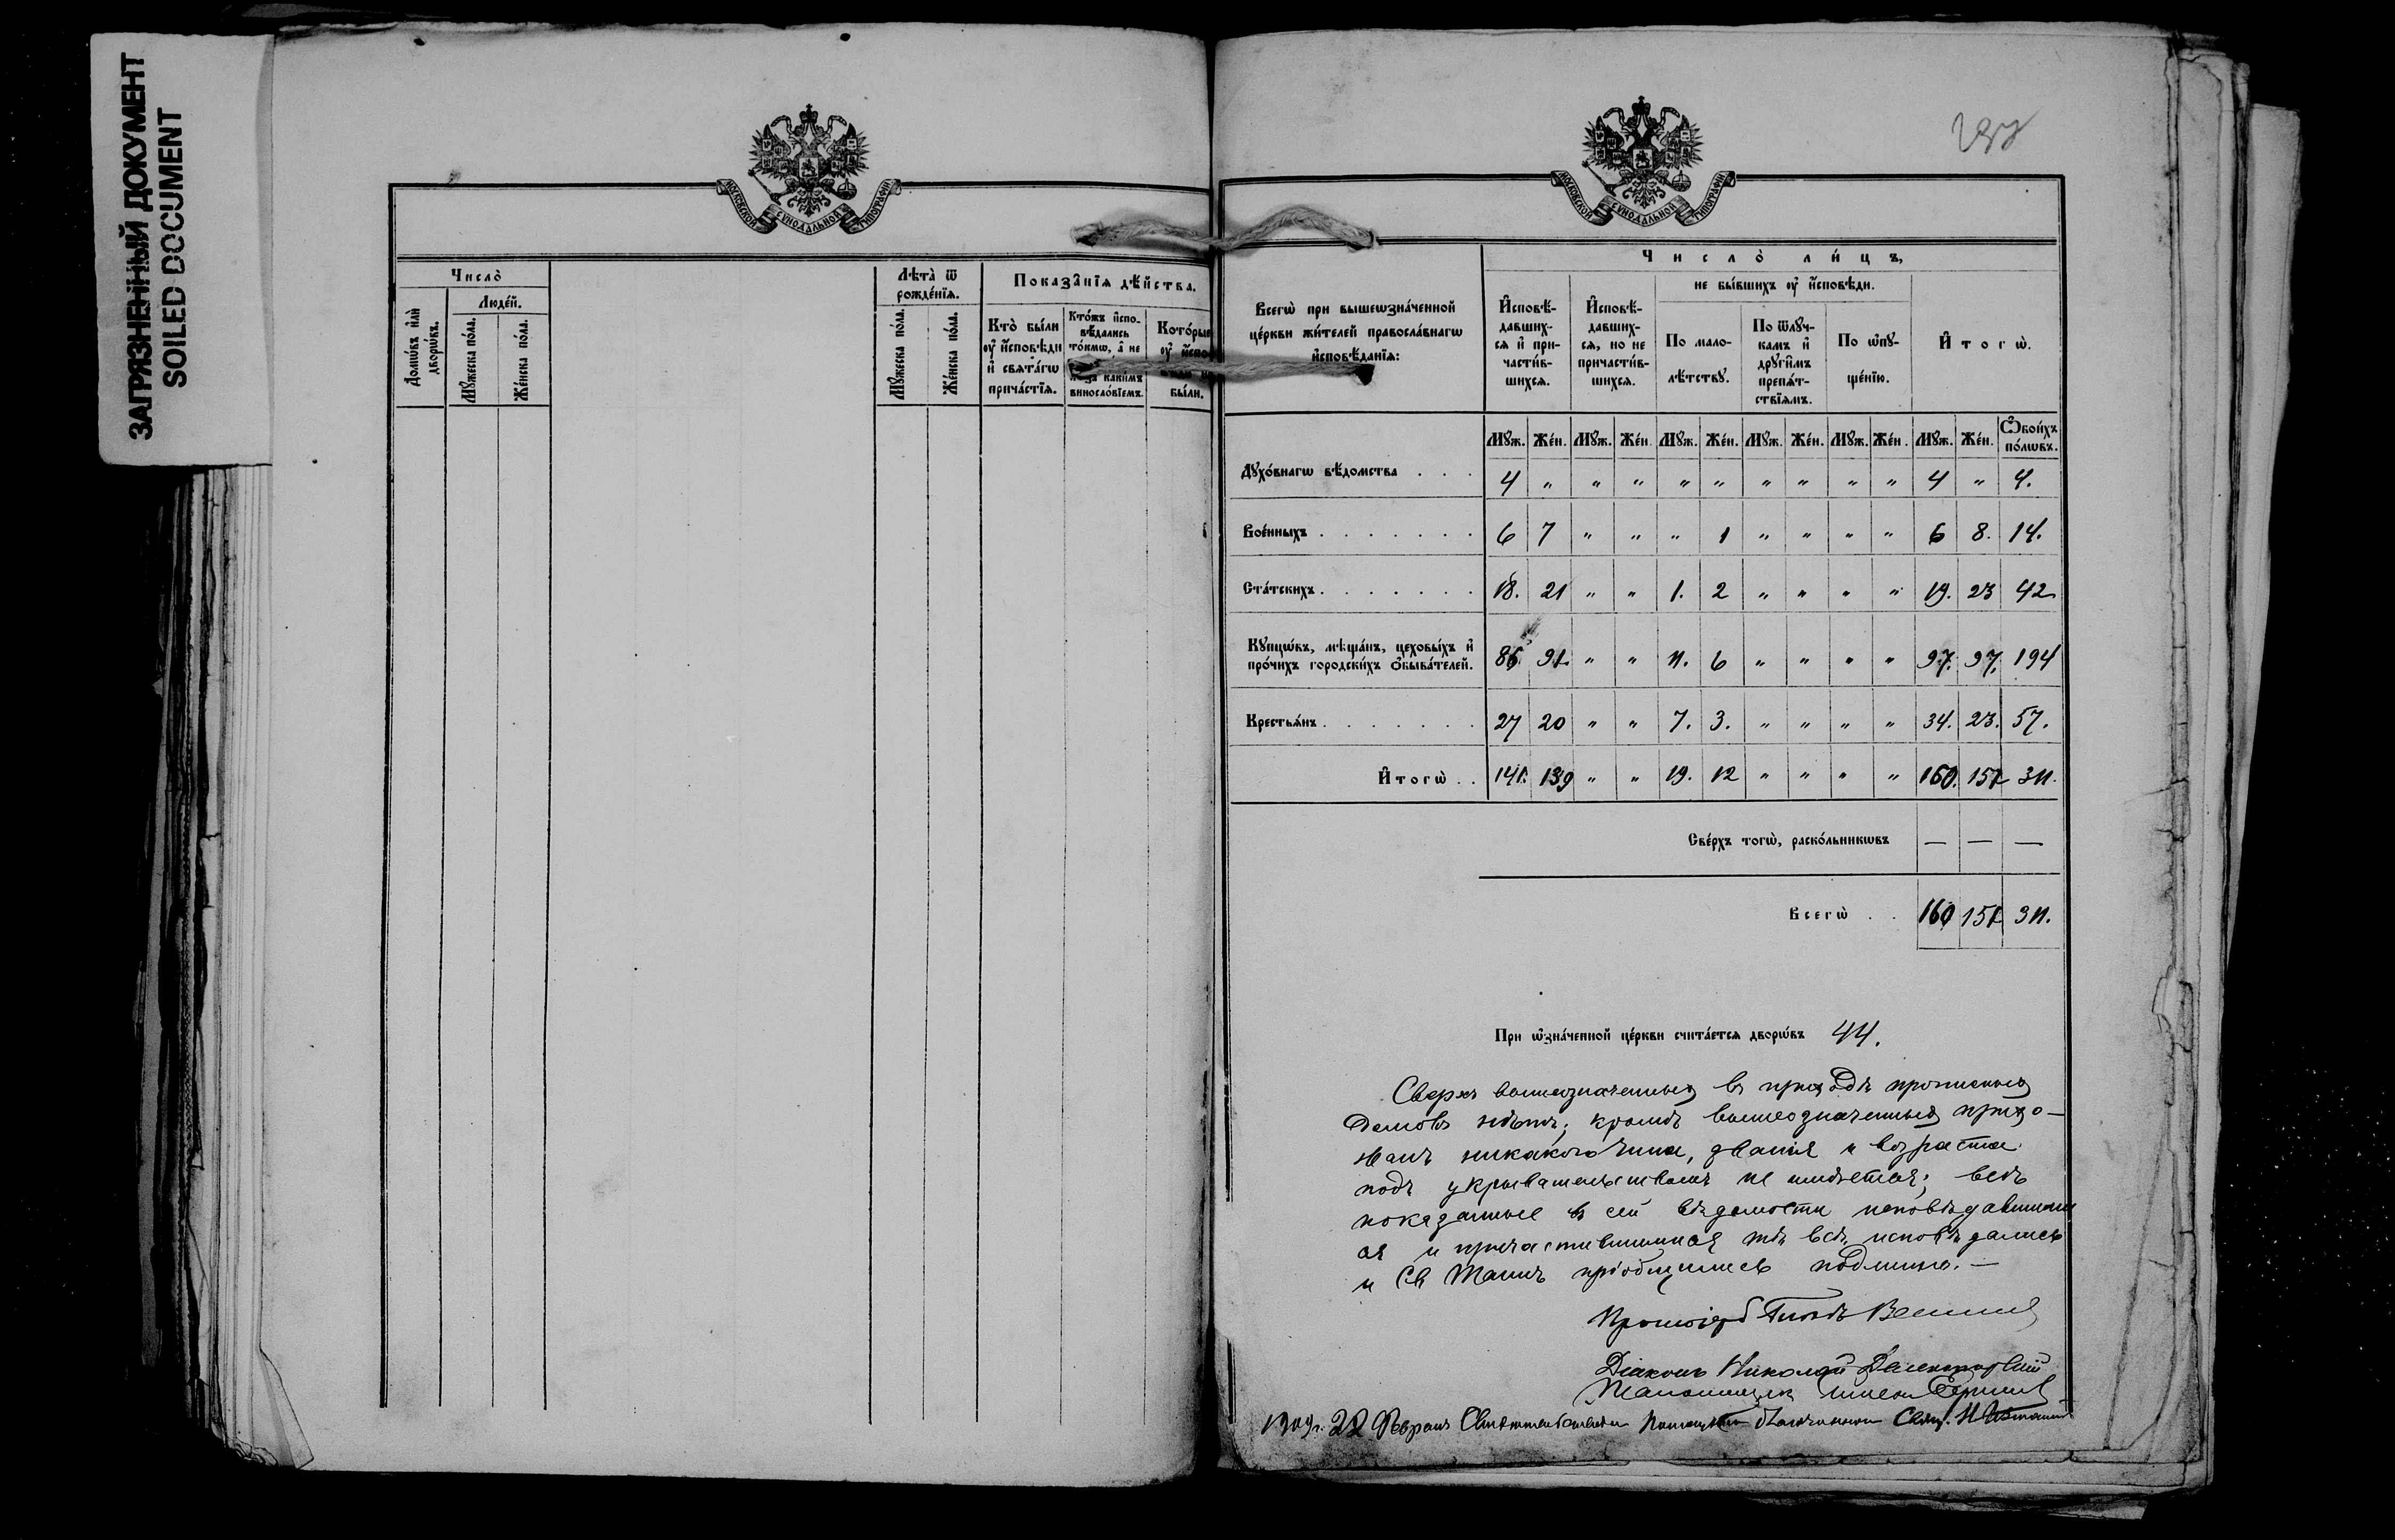 ЗАГРЯЗНЕННЫЙ ДОКУМЕНТ
SOILED DOCUMENT
МОСКОВСКОЙ СѴНОДАЛЬНОЙ ТИПОГРАФІИ
Число̀
Домѡ́въ и҆лѝ дворѡ́въ.
Люде́й.
Мꙋ́жеска по́ла.
Же́нска по́ла.
Лѣта̀ ѿ рожде́нїѧ.
Мꙋ́жеска по́ла.
Же́нска по́ла.
Показа̑нїѧ дѣ́йства.
Кто̀ бы́ли ᲂу҆ и҆́сповѣди и҆ свѧта́гѡ прича́стїѧ.
Кто́жъ и҆спо-
вѣ́дались
то́кмѡ, а҆ не
каки́мъ
виносло́вїемъ.
Кото́рые
ᲂу҆
бы́ли.
МОСКОВСКОЙ СѴНОДАЛЬНОЙ ТИПОГРАФІИ
Всегѡ̀ при вышеѡзна́ченной
це́ркви жи́телей правосла́внагѡ
и҆сповѣ́данїѧ:
Число̀ ли́цъ,
И҆сповѣ́-
давших-
сѧ и҆ при-
части́в-
шихсѧ.
И҆сповѣ́-
давших-
сѧ, но не
причасти́в-
шихсѧ.
не бы́вшихъ ᲂу҆ и҆́сповѣди.
По мало-
лѣ́тствꙋ.
По ѿлꙋ́ч-
камъ и҆
дрꙋги̑мъ
препѧ́т-
ствїѧмъ.
По ѡ҆пꙋ-
ще́нїю.
И҆тогѡ̀.
Мꙋж. Же́н. Мꙋж. Же́н. Мꙋж. Же́н. Мꙋж. Же́н. Мꙋж. Же́н. Мꙋж. Же́н. Ѻ҆бои́хъ по́лѡвъ.
Дꙋхо́внагѡ вѣ́домства . . . 4 " " " " " " " " " 4 " 4.
Вое́нныхъ . . . . . . . 6 7 " " " 1 " " " " 6 8. 14.
Ста́тскихъ . . . . . . . 18. 21 " " 1. 2 " " " " 19. 23 42
Кꙋпцѡ́въ, мѣща́нъ, цеховы́хъ и҆
про́чихъ городски́хъ ѻ҆быва́телей. 86. 91 " " 11. 6 " " " " 97. 97. 194
Крестьѧ́нъ . . . . . . . 27 20 " " 7. 3. " " " " 34. 23. 57.
И҆тогѡ̀ . . 141. 139 " " 19. 12 " " " " 160. 151 311.
Све́рхъ тогѡ̀, раско́льникѡвъ — — —
Всегѡ̀ . . 160 151 311.
При ѡ҆зна́ченной це́ркви счита́етсѧ дворѡ́въ 44.
Сверхъ вышеозначенныхъ въ приходѣ прописныхъ
домовъ нѣтъ; кромѣ вышеозначенныхъ прихо-
жанъ никакого чина, званія и возраста
подъ укрывательствомъ не имѣется; всѣ
показанные въ сей вѣдомости исповѣдавшими
ся и причастившимися тѣ всѣ исповѣдались
и Св Таинъ пріобщились подлинно. —
Діаконъ Николай
1909 г. 22 Свящ.